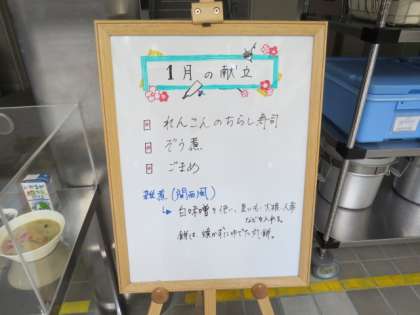 1月の献立
れんこんのちらし寿司
ぞう煮
ごまめ
雑煮(関西風)
白味噌を使い、里いも、大根、人参
などを入れる。
餅は、焼かずにゆでた丸餅。